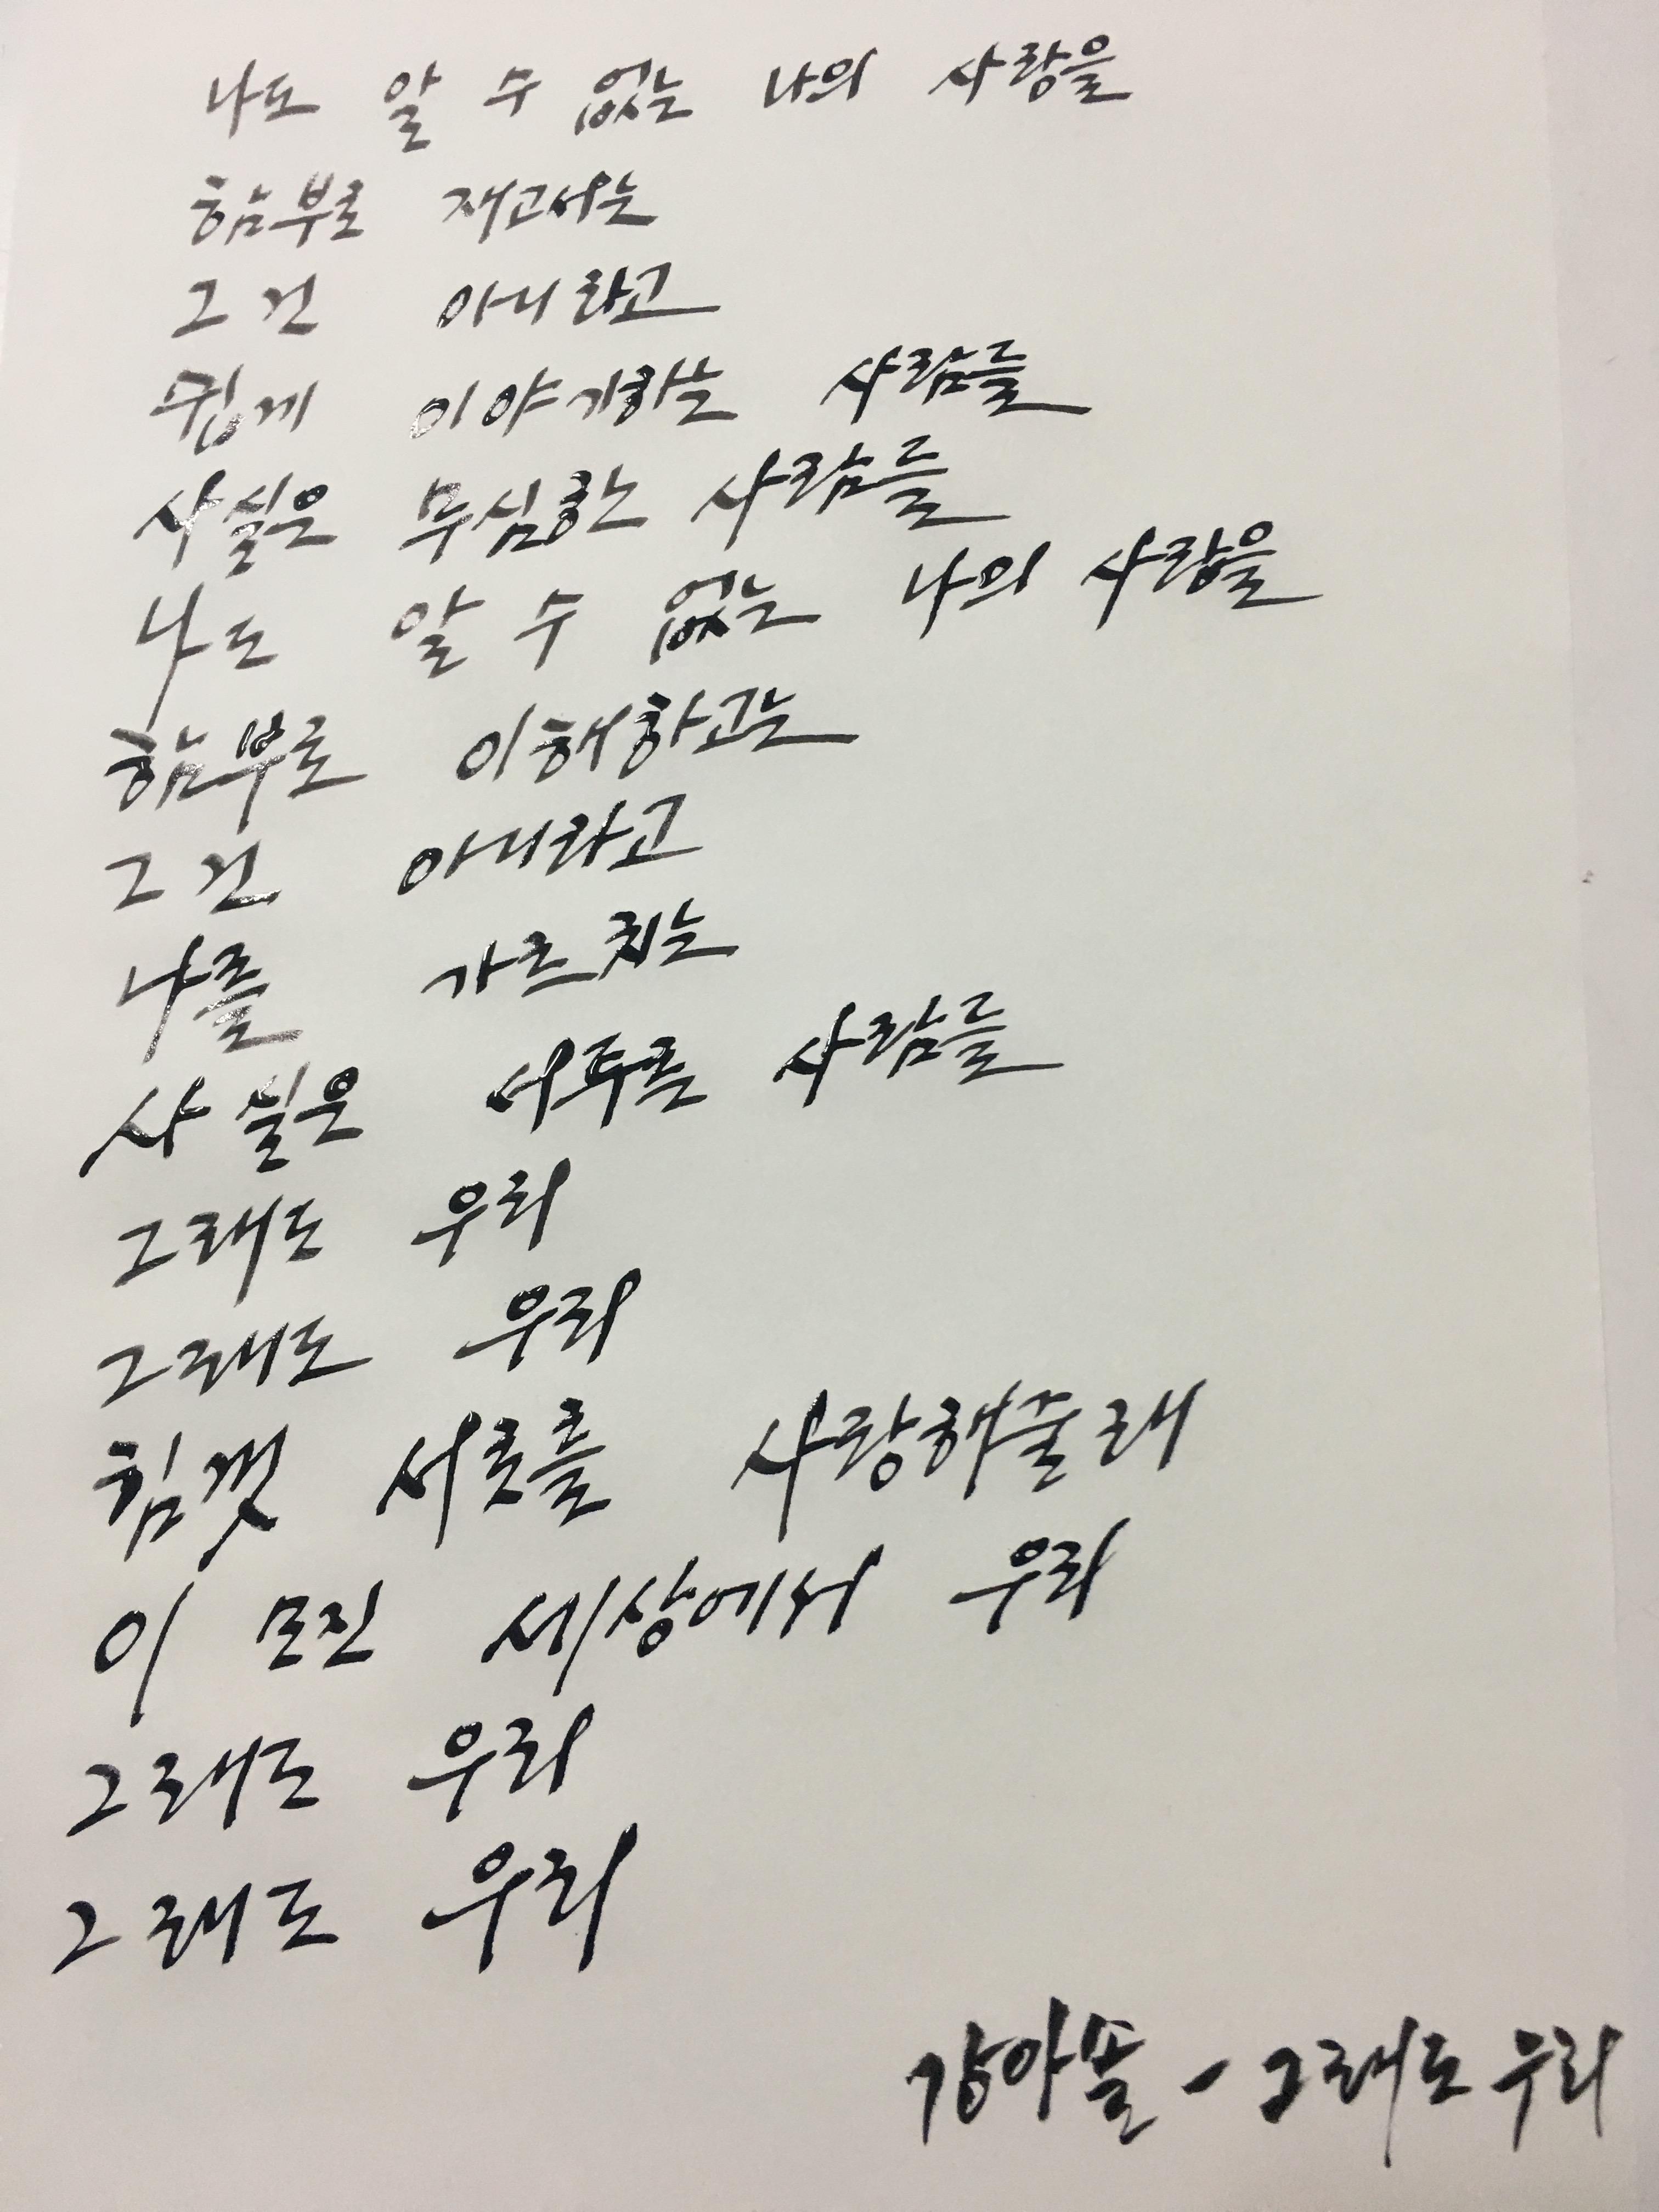 나도 알 수 없는 나의 사랑을
함부로 재고서는
그건 아니라고
쉽게 이야기하는 사람들
사실은 무심한 사람들
나도 알 수 없는 나의 사랑을
함부로 이해하고는
그건 아니라고
나를 가르치는
사실은 서투른 사람들
그래도 우리
그래도 우리
힘껏 서로를 사랑해줄래
이 모진 세상에서 우리
그래도 우리
그래도 우리
강아솔 - 그래도 우리